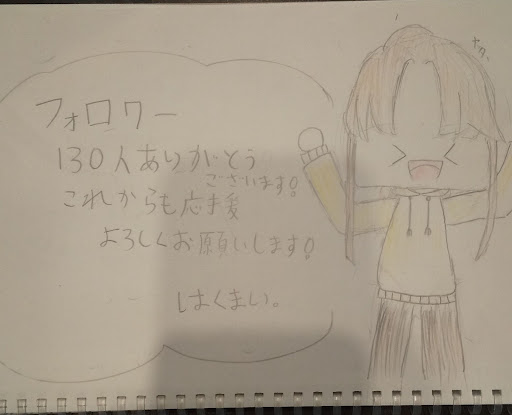 フォロワー
130人ありがとう
ございます!
これからも応援
よろしくお願いします!
はくまい。